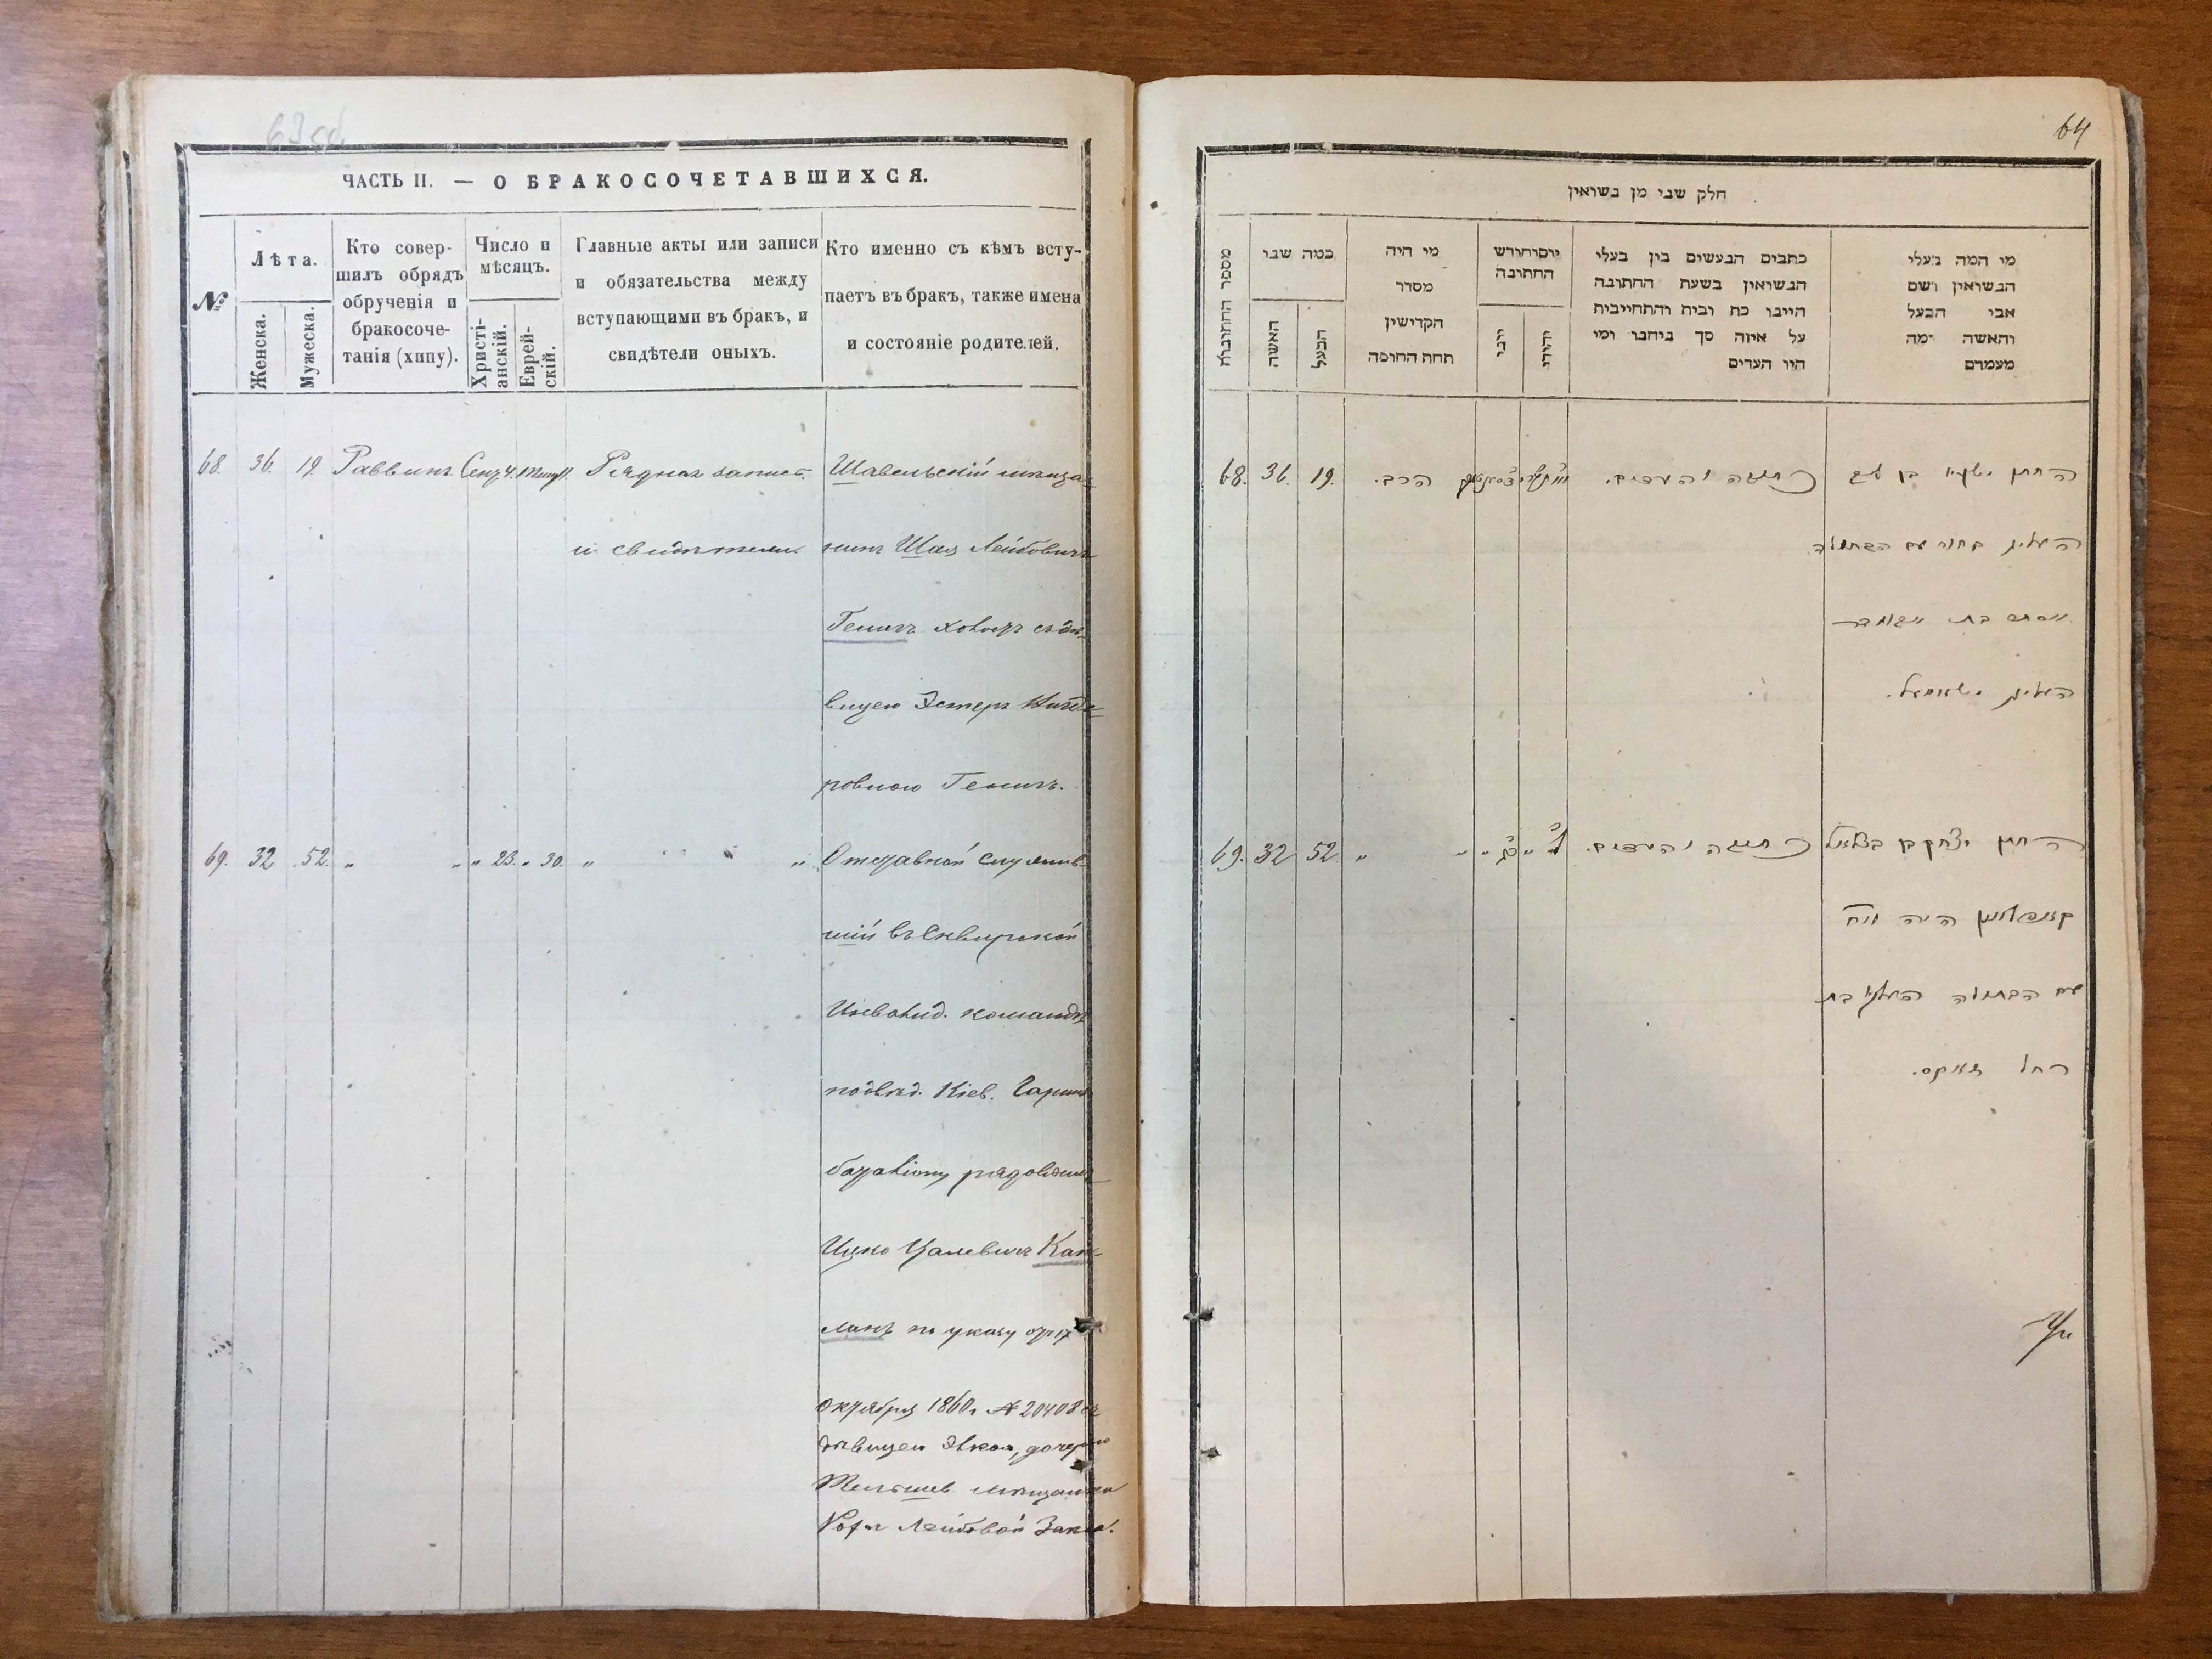 ЧАСТЬ II. — О БРАКОСОЧЕТАВШИХСЯ.
№
Лѣта.
Женска.
Мужеска.
Кто совер-
шилъ обрядъ
обрученія и
бракосоче-
танія (хипу).
Число и
мѣсяцъ.
Христі-
анскій.
Еврей-
скій.
Главные акты или записи
и обязательства между
вступающими въ бракъ, и
свидѣтели оныхъ.
Кто именно съ кѣмъ всту-
паетъ въ бракъ, также имена
и состояніе родителей.
68. 36. 19 Раввинъ Сент. 4. Рядная запись Шавельскій мѣща-
и свидѣтели нинъ Шая Лейбовичъ
холост съ дѣ-
вицею Эстеръ
ровною
69. 32 52. „ „ „ 23. „ 30. „ „ Отставной служив-
шій въ Сквирской
Инвалид. команды
подвѣд. Кіев. Гарниз
баталіону рядовым
Ицко Цалевичъ Кап-
ланъ по указу от 17
октября 1860 г № 20408 съ
дѣвицею дочерью
Тельшев мѣщанки
Лейбовой Закса.
64
חלק שבי מן בשואין
מספר החתובות
כמה שבי
האשה
הבעל
מי היה
מסדר
הקדישין
תחת החופה
יום וחודש
החתובה
כתבים הבעשים בין בעלי
הבשואין בשעת החתובה
הייבו כת ובית והתחייבית
על איזה סך ביחבו ומי
היו העדים
מי המה בעלי
הבשואין ושם
אבי הבעל
והאשה ימה
מעמדם
68. 36. 19. הרב. כתובה והעדים. החתן ישעיו בן ליב
העלמן בחור עם הבתולה
אסתר בת
העלמן ישראל.
69. 32 52 „ „ „ „ כתובה והעדים. החתן יצחק בן בצלאל
קאפלאן היה
עם הבתולה בת
רחל זאקס.